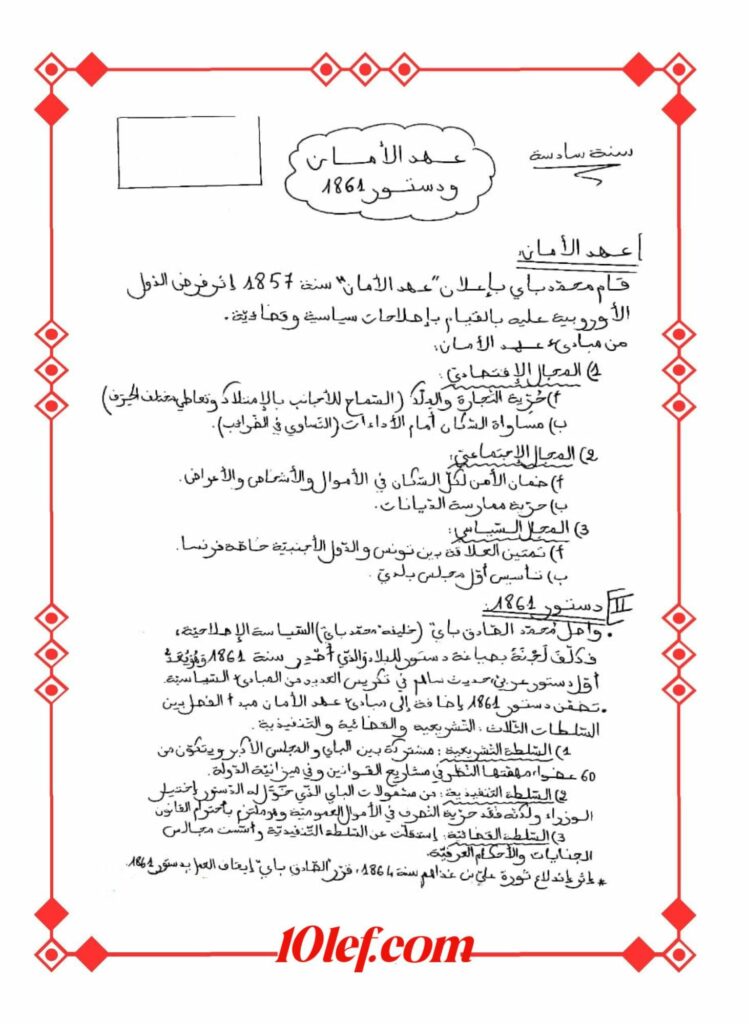 سنة سادسة
عهد الأمان
ودستور 1861
I عهد الأمان:
قام محمد باي بإعلان "عهد الأمان" سنة 1857 إثر فرض الدّول
الأوروبية عليه بالقيام بإصلاحات سياسية وقضائية.
من مبادئ عهد الأمان:
1) المجال الإقتصادي:
أ) حُرّية التجارة و (السّماح للأجانب بالإمتلاك وتعاطي مختلف الحِرَف)
ب) مساواة السّكان أمام الأداءات (التّساوي في الضّرائب).
2) المجال الإجتماعي:
أ) ضمان الأمن لكلّ السّكان في الأموال والأشخاص والأعراض.
ب) حرّية ممارسة الدّيانات.
3) المجال السّياسي:
أ) تمتين العلاقة بين تونس والدّول الأجنبيّة خاصّة فرنسا.
ب) تأسيس أوّل مجلس بلديّ.
II دستور 1861:
• واصل مُحمّد الصّادق باي (خليفة محمّد باي) السّياسة الإصلاحيّة،
فكلّف لَجْنَةً بصياغة دستور للبلاد والذّي أُصْدِر سنة 1861 وهُوَ يُعَدُّ
أوّل دستور عربي حديث ساهم في تكريس العديد من المبادئ السّياسيّة
• تضمّن دستور 1861 بإضافة إلى مبادئ عهد الأمان مبدأ الفصل بين
السّلطات الثّلاث: التّشريعية والقضائية والتّنفيذية.
1) السّلطة التّشريعية: مشتركة بين الباي والمجلس الأكبر ويتكوّن من
60 عضوا، مهمّتها النّظر في مشاريع القوانين وفي ميزانيّة الدّولة.
2) السّلطة التّنفيذية: من مشمولات الباي الذّي خوّل له الدّستور إختيار
الوزراء ولكنّه فقد حرّية التّصرف في الأموال العموميّة وهو ملتزم بإحترام القانون
3) السّلطة القضائية: إستقلّت عن السّلطة التّنفيذيّة وأسّست مجالس
الجنايات والأحكام العرفيّة.
* إثر إندلاع ثورة علي بن غذاهم سنة 1864، قرّر "الصّادق باي" إيقاف العمل بدستور 1861.
10lef.com